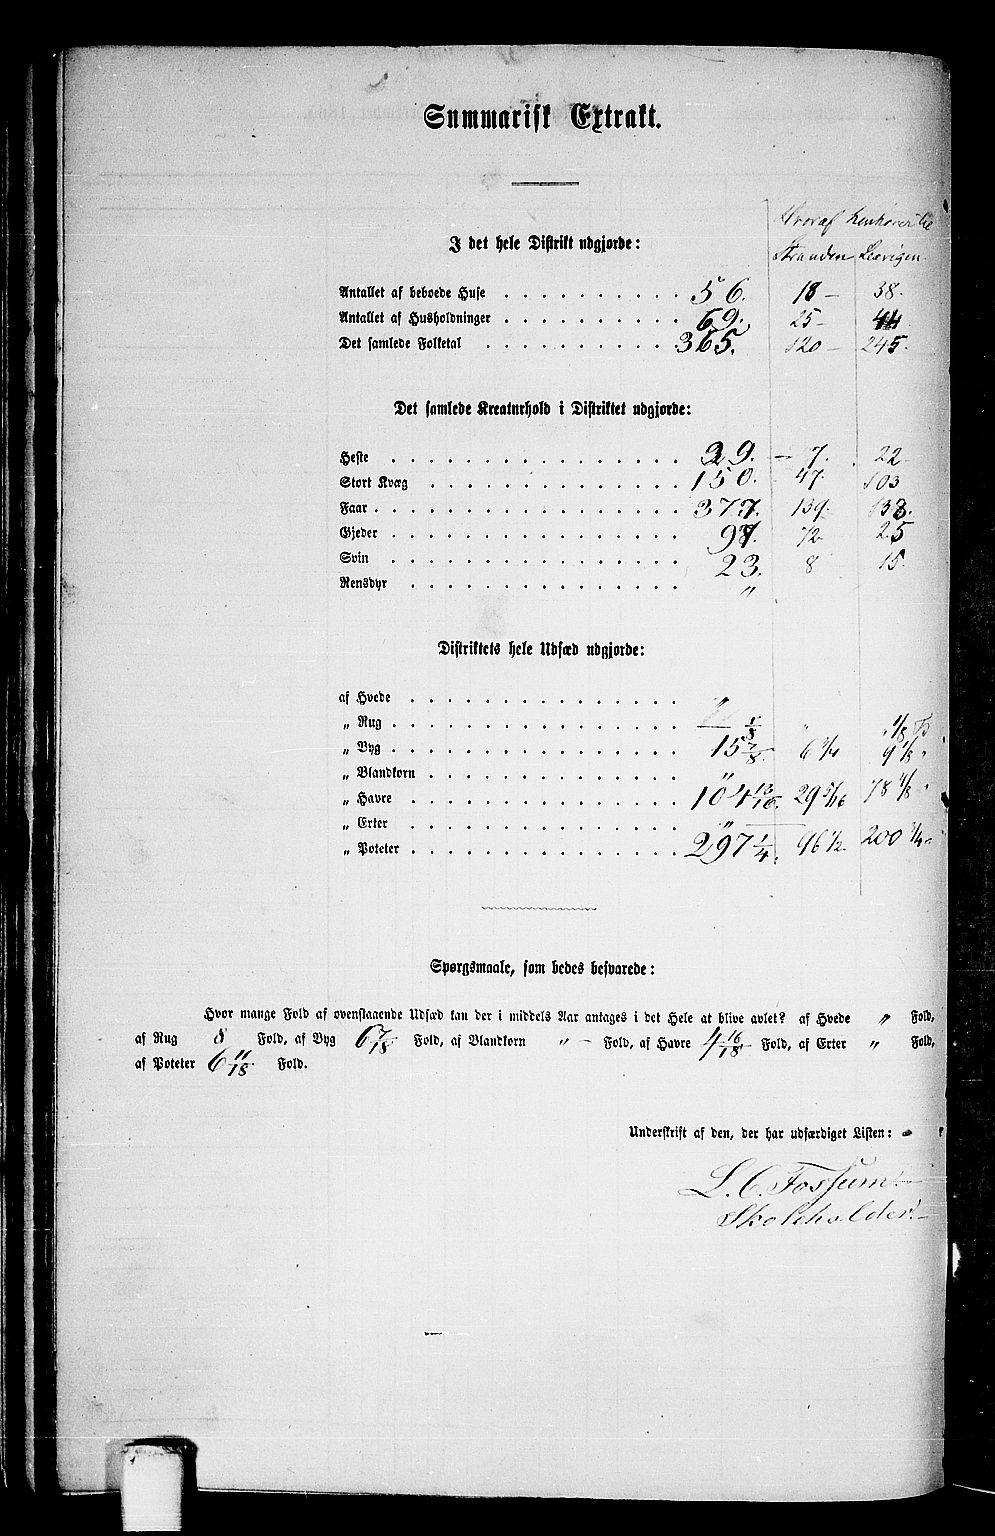 Summarisk Extrakt.
Hvoraf henhører til
I det hele Distrikt udgjorde:
Stranden Leevigen
Antallet af beboede Huse 56. 18 — 38.
Antallet af Husholdninger 69. 25 — 44
Det samlede Folketal 365. 120 — 245.
Det samlede Kreaturhold i Distriktet udgjorde:
Heste 29. — 7. 22
Stort Kvæg 150. 47. 103
Faar 377. 139. 133.
Gjeder 97. 72. 25
Svin 23. 8 15.
Rensdyr "
Distriktets hele Udsæd udgjorde:
af Hvede "
„ Rug 1/8 " 1/8
„ Byg 15 7/8. 6 3/4 9 1/8 "
„ Blandkorn "
„ Havre 104 13/16. 29 5/16 78 4/8 "
„ Erter "
„ Poteter 297 1/4. 96 1/2. 200 3/4 "
Spørgsmaale, som bedes besvarede:
Hvor mange Fold af ovenstaaende Udsæd kan der i middels Aar antages i det Hele at blive avlet? af Hvede " Fold,
af Rug 8 Fold, af Byg 6 7/18 Fold, af Blandkorn " — Fold, af Havre 4 16/18 Fold, af Erter " Fold,
af Poteter 6 11/18 Fold.
Underskrift af den, der har udfærdiget Listen:
L. C. Fossum.
Skoleholder.